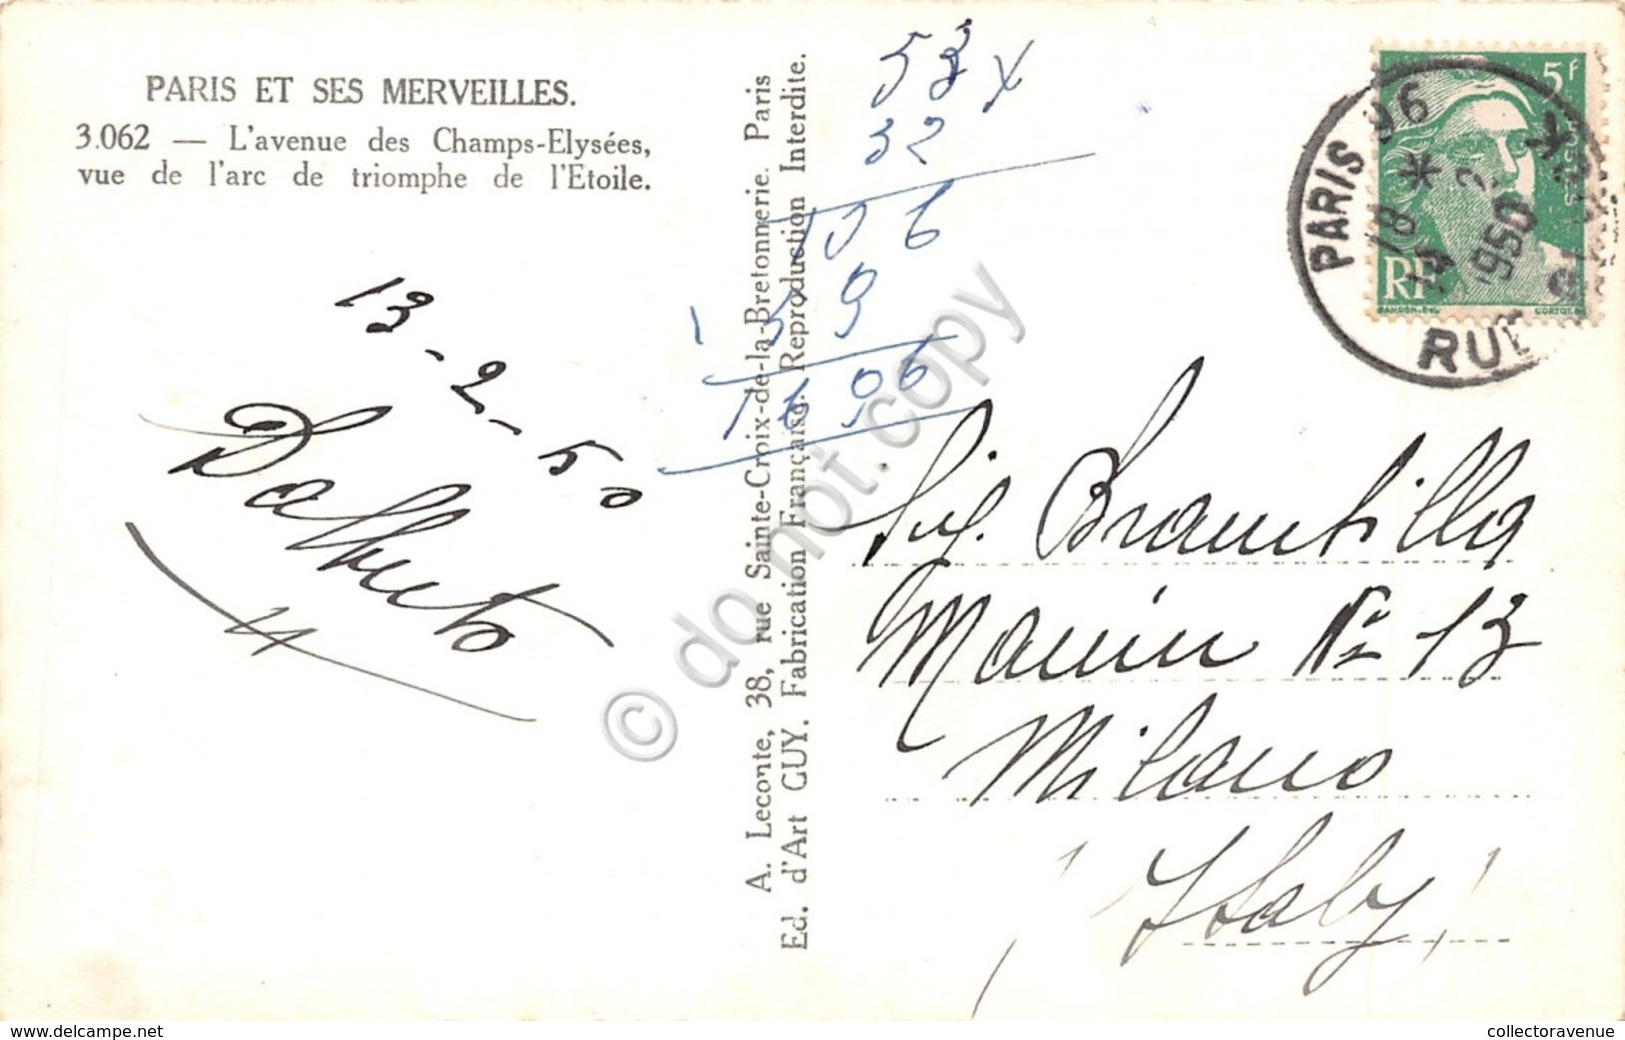 PARIS ET SES MERVEILLES.
3.062 — L'avenue des Champs-Elysées,
vue de l'arc de triomphe de l'Etoile.
13-2-50
A. Leconte, 38, rue Sainte-Croix-de-la-Bretonnerie. Paris
Ed. d'Art GUY. Fabrication Française. Reproduction Interdite.
53 x
32
106
159
1696
5F
RF
GANDON
CORTOT
PARIS 96
18
14 2
1950
RUE
Sig. Brantilla
Manin No 13
Milano
Italy
© do not copy
www.delcampe.net
collectoravenue